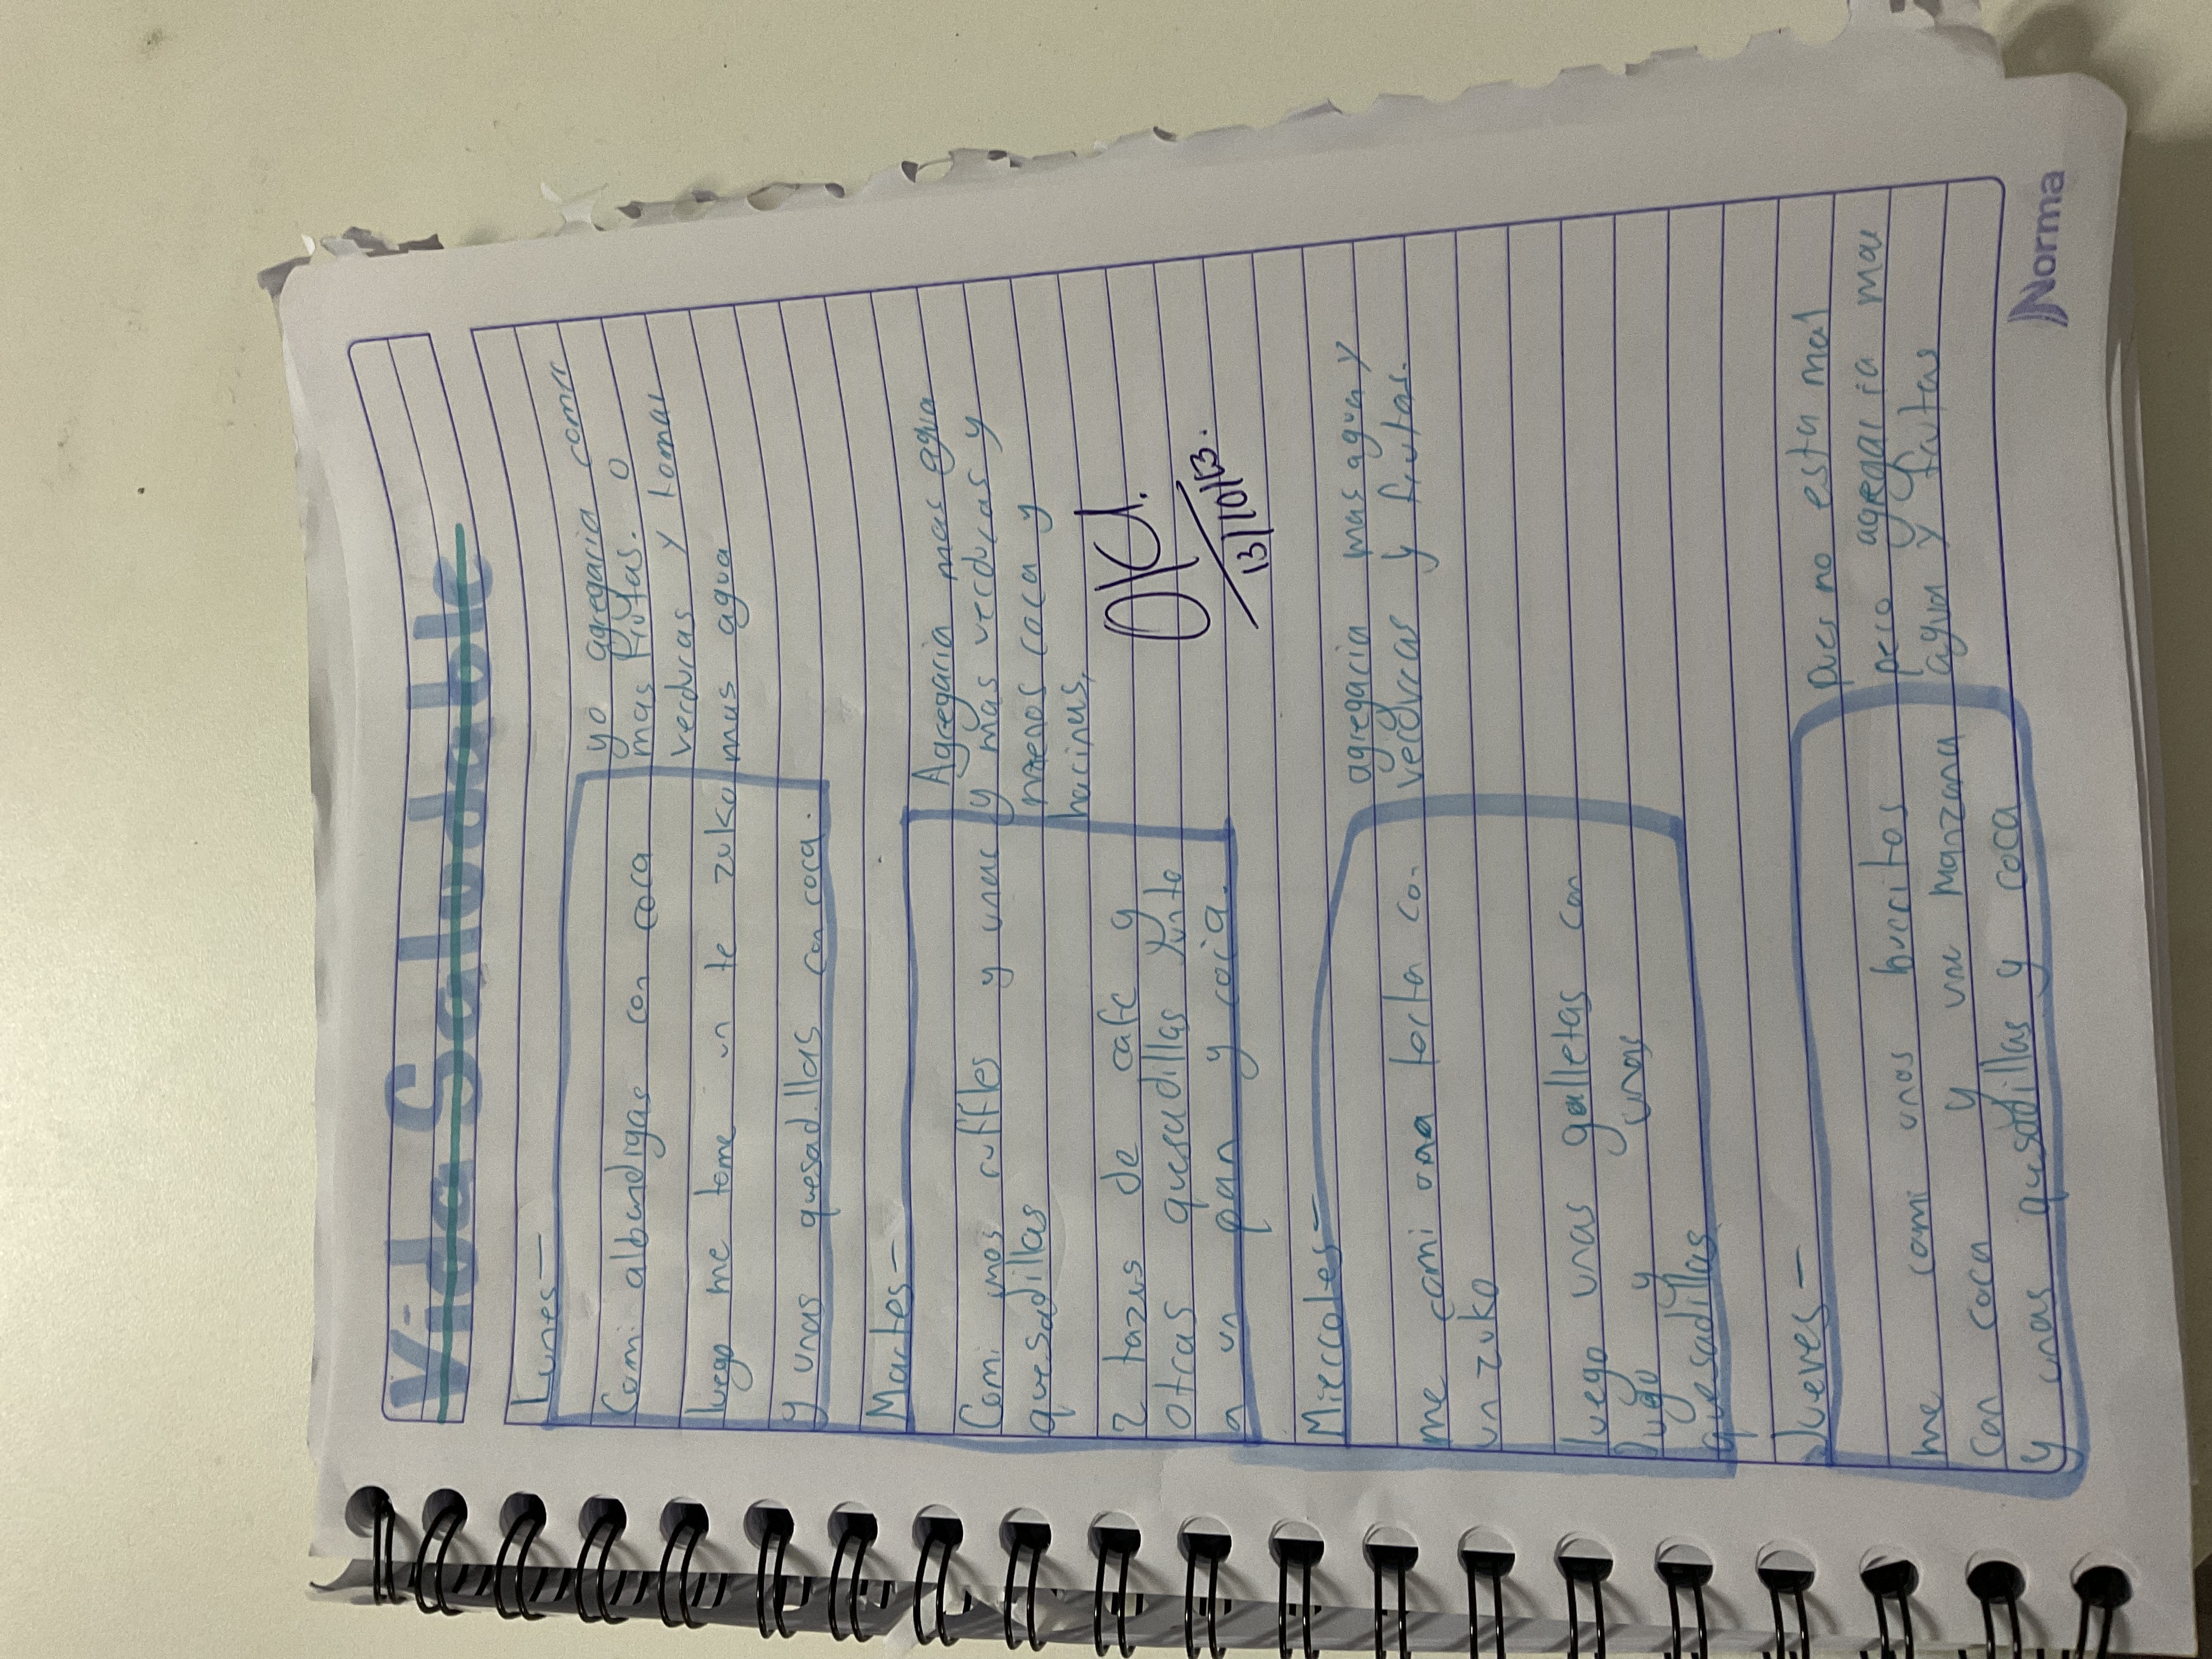 Vida Saludable
Lunes—
yo agregaria comer
mas frutas. o
verduras y tomar
mas agua
Comi albandigas con coca
luego me tome un te zuko
y unas quesadillas con coca.
Martes—
Agregaria mas agua
y mas verduras y
menos coca y
harinas,
Comi unos ruffles y unas
quesadillas
2 tazas de cafe y
otras quesadillas junto
a un pan y
OK.
13/10/13.
Miercoles—
agregaria mas agua y
verduras y frutas.
me comi una torta con
un zuko
luego unas galletas con
jugo y unas
quesadillas
Jueves—
pues no esta mal
pero agregaria mas
agua y frutas
me comi unos burritos
con coca y una manzana
y unas quesadillas y coca
Norma